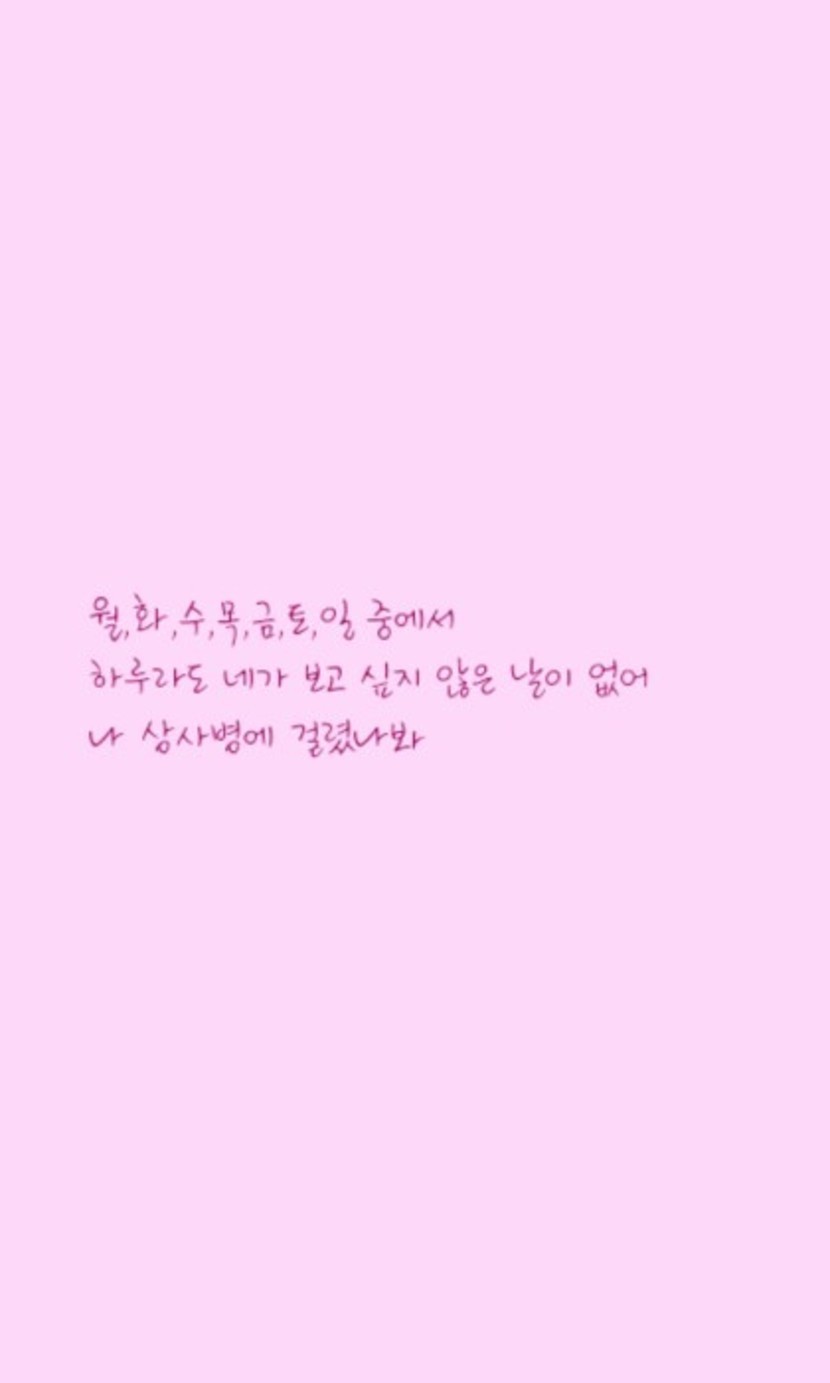 월,화,수,목,금,토,일 중에서
하루라도 네가 보고 싶지 않은 날이 없어
나 상사병에 걸렸나봐